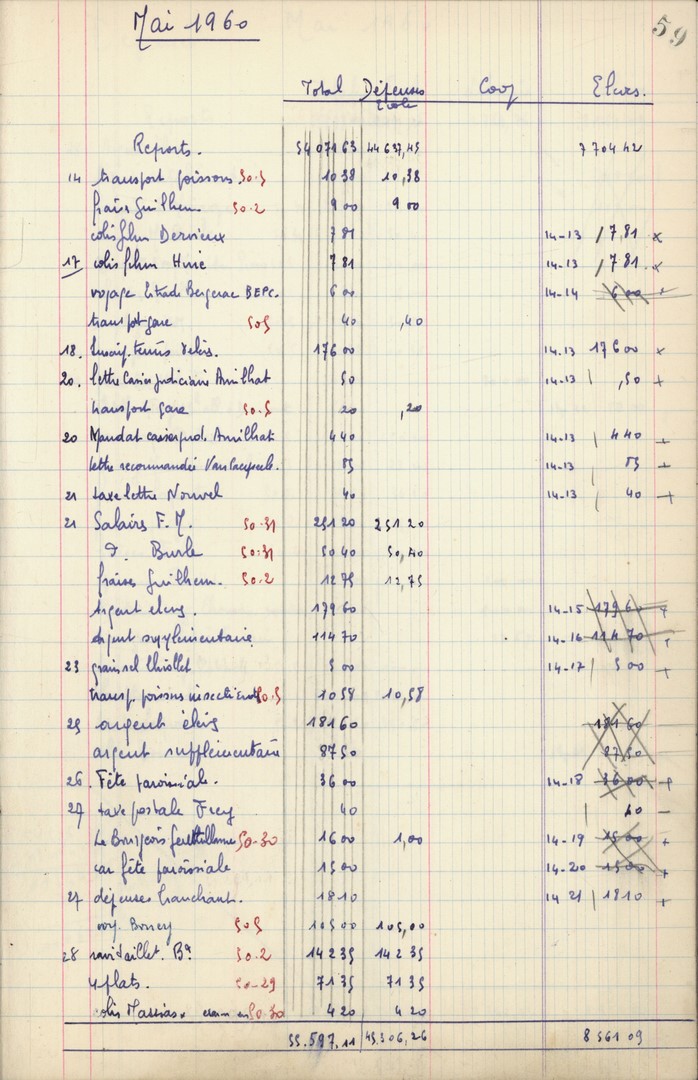 Mai 1960
59
Total Dépenses Ecole Coop Elèves.
Reports. 54 071 63 44 637,45 7 704 42
14 transport poissons 50.5 10 38 10,38
frais Guilhem 50.2 9 00 9 00
colis film Dervieux 7 81 14-13 7 81 x
17 colis film 7 81 14-13 7 81 x
voyage Bergerac BEPC. 6 00 14-14 6 00 +
transpt gare 505 40 ,40
18. 176 00 14.13 176 00 x
20. lettre Casier judiciaire Amilhat 50 14-13 ,50 +
transport gare 50.5 20 ,20
20 Mandat casier jud. Amilhat 4 40 14-13 4 40 +
lettre recommandée 85 14-13 85 +
21 taxe lettre Nouvel 40 14-13 40 +
21 Salaires F. M. 50.31 251 20 251 20
d. Burle 50.31 50 40 50,40
fraises Guilhem. 50.2 12 75 12,75
Argent elèves. 179 60 14-15 179 60 +
argent supplémentaire 114 70 14-16 114 70 +
23 Thiollet 5 00 14-17 5 00 +
transp. poissons 50.5 10 58 10,58
25 argent élèves 181 60 181 60
argent supplémentaire 87 50 87 50
26. Fête paroissiale. 36 00 14-18 36 00 +
27 taxe postale Frey 40 40 -
Le Bourgeois Gentilhomme 50-30 16 00 1,00 14-19 15 00 +
car fête paroissiale 15 00 14-20 15 00 +
27 dépenses Tranchant. 18 10 14 21 18 10 +
voy. 505 105 00 105,00
28 ravitaillet. Bª 50.2 142 35 142 35
4 plats. 50-29 71 35 71 35
colis Massias 50.30 4 20 4 20
55.597.11 45.506,26 8 561 09